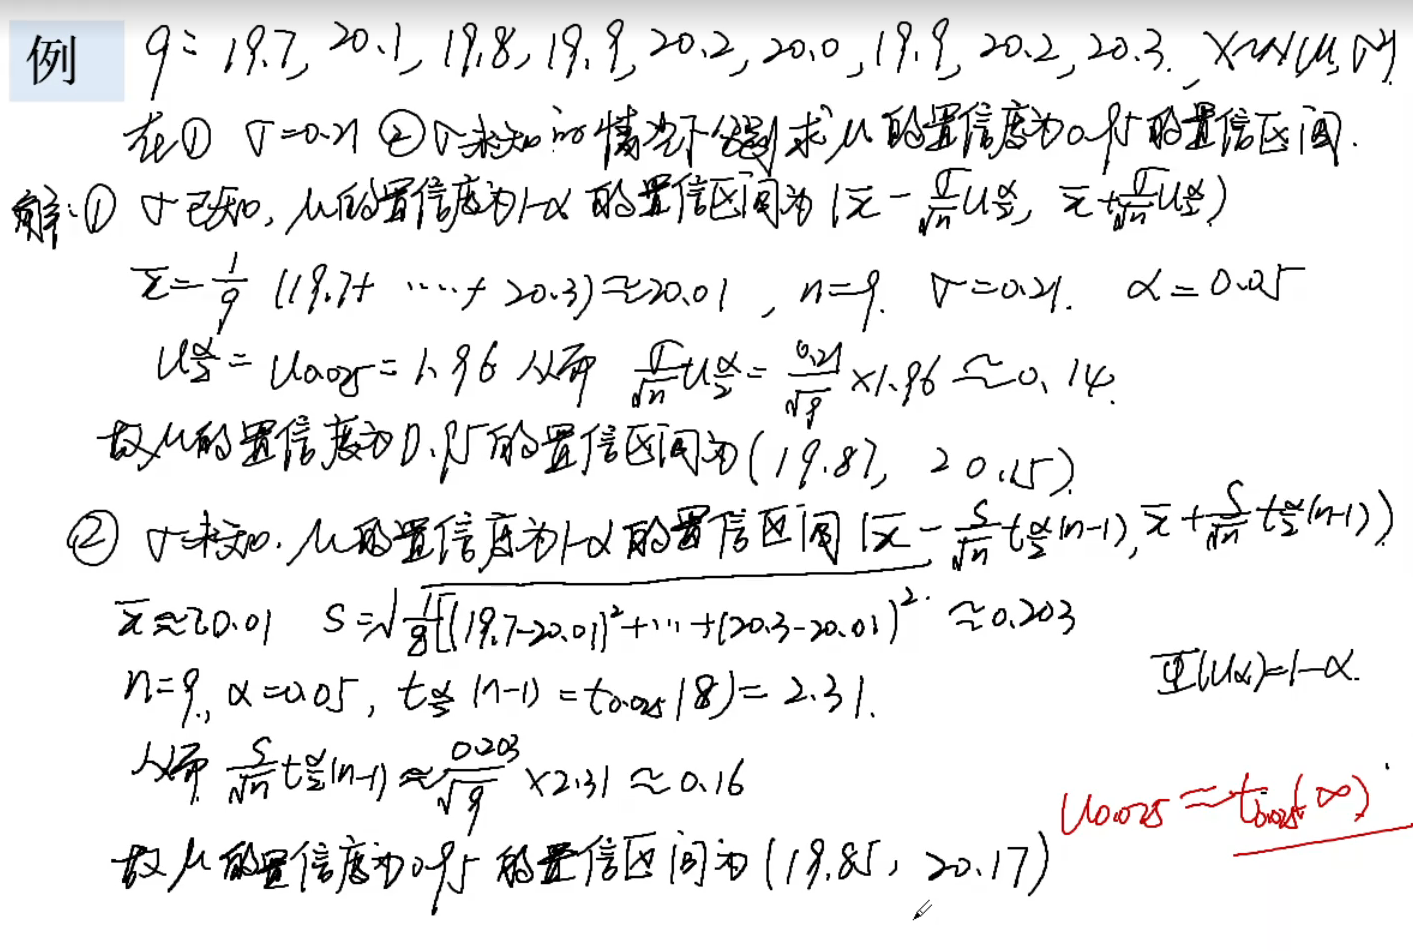 例 9: 19.7, 20.1, 19.8, 19.9, 20.2, 20.0, 19.9, 20.2, 20.3. X~N(μ,σ²)
在① σ=0.21 ②σ未知的情况下分别求μ的置信度为0.95的置信区间.
解:① σ已知, μ的置信度为1-α的置信区间为(x̄-σ/√n u_{α/2}, x̄+σ/√n u_{α/2})
x̄=1/9(19.7+ ····+ 20.3)≈20.01, n=9. σ=0.21. α=0.05
u_{α/2}=u_{0.025}=1.96 从而 σ/√n u_{α/2}=0.21/√9×1.96≈0.14.
故μ的置信度为0.95的置信区间为(19.87, 20.15)
② σ未知. μ的置信度为1-α的置信区间(x̄-S/√n t_{α/2}(n-1), x̄+S/√n t_{α/2}(n-1))
x̄≈20.01 S=√1/8[(19.7-20.01)²+···+(20.3-20.01)² ≈0.203
n=9, α=0.05, t_{α/2}(n-1)=t_{0.025}(8)=2.31.
Φ(u_α)=1-α.
从而 S/√n t_{α/2}(n-1)≈0.203/√9×2.31≈0.16
u_{0.025}≈t_{0.025}(∞)
故μ的置信度为0.95的置信区间为(19.85, 20.17)